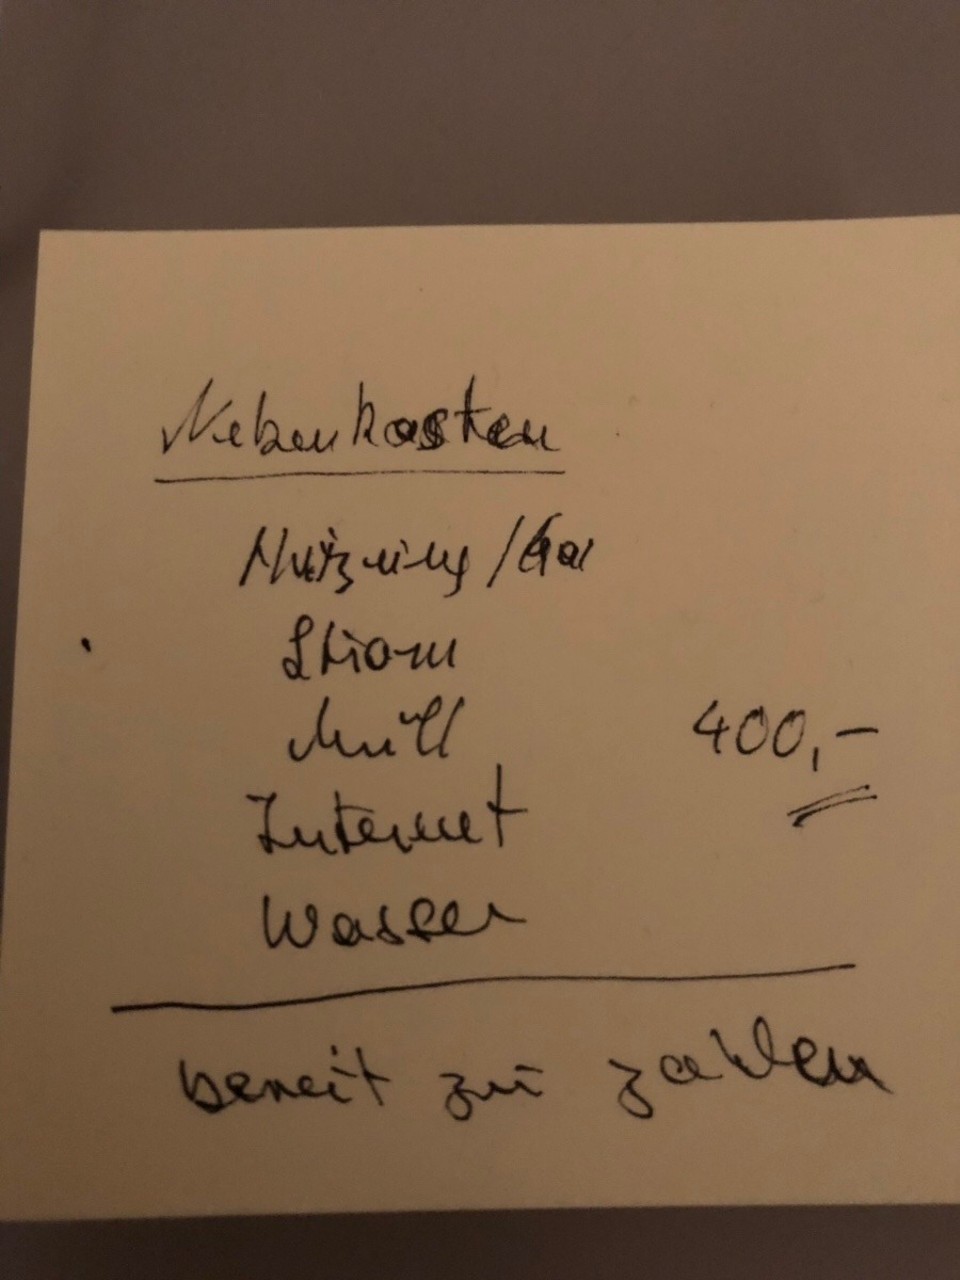 Nebenkosten
Nutzung/Gas
Strom
Müll 400,-
Internet
Wasser
bereit zu zahlen